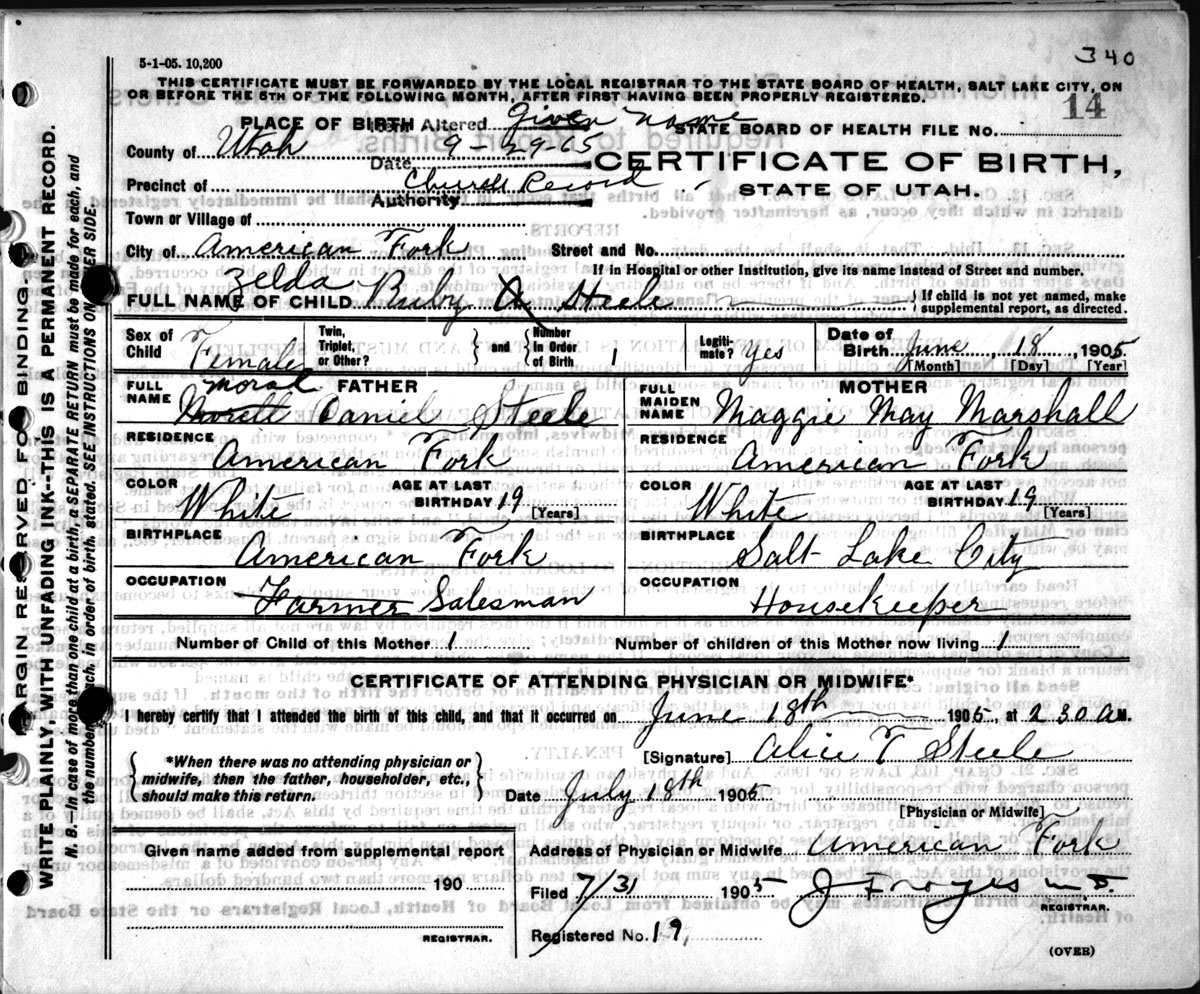 340
5-1-05. 10,200
THIS CERTIFICATE MUST BE FORWARDED BY THE LOCAL REGISTRAR TO THE STATE BOARD OF HEALTH, SALT LAKE CITY, ON
OR BEFORE THE 5TH OF THE FOLLOWING MONTH, AFTER FIRST HAVING BEEN PROPERLY REGISTERED.
14
PLACE OF BIRTH Item Altered Given name STATE BOARD OF HEALTH FILE NO.
County of Utah Date 9-29-65
CERTIFICATE OF BIRTH,
Precinct of Church Record
Authority
STATE OF UTAH.
Town or Village of
City of American Fork Street and No.
If in Hospital or other Institution, give its name instead of Street and number.
Zelda
FULL NAME OF CHILD Ruby A Steele
If child is not yet named, make
supplemental report, as directed.
Sex of Child Female
Twin, Triplet, or Other?
and
Number in Order of Birth 1
Legiti-mate? Yes
Date of Birth June 18, 1905
[Month] [Day] [Year]
FATHER
FULL NAME Moral Daniel Steele
MOTHER
FULL MAIDEN NAME Maggie May Marshall
RESIDENCE American Fork
RESIDENCE American Fork
COLOR White AGE AT LAST BIRTHDAY 19 [Years]
COLOR White AGE AT LAST BIRTHDAY 19 [Years]
BIRTHPLACE American Fork
BIRTHPLACE Salt Lake City
OCCUPATION Farmer Salesman
OCCUPATION Housekeeper
Number of Child of this Mother 1 Number of children of this Mother now living 1
CERTIFICATE OF ATTENDING PHYSICIAN OR MIDWIFE*
I hereby certify that I attended the birth of this child, and that it occurred on June 18th 1905, at 2 30 A M.
*When there was no attending physician or
midwife, then the father, householder, etc.,
should make this return.
[Signature] Alice T Steele
Date July 18th 1905
[Physician or Midwife]
Given name added from supplemental report
190
REGISTRAR.
Address of Physician or Midwife American Fork
Filed 7/31 1905 J F Noyes M.D.
REGISTRAR.
Registered No. 19,
(OVER)
MARGIN RESERVED FOR BINDING.
WRITE PLAINLY, WITH UNFADING INK--THIS IS A PERMANENT RECORD.
N. B.—In case of more than one child at a birth, a SEPARATE RETURN must be made for each, and
the number of each, in order of birth, stated. SEE INSTRUCTIONS ON OTHER SIDE.